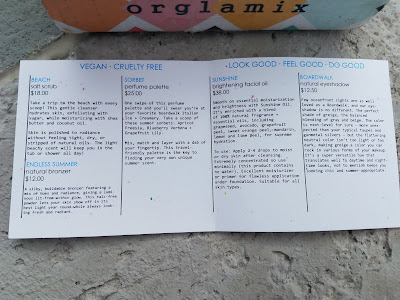 orglamix
VEGAN · CRUELTY FREE
BEACH
salt scrub
$18.00
Take a trip to the beach with every
scoop! This gentle cleanser
hydrates skin, exfoliating with
sugar, while moisturizing with shea
butter and coconut oil.
Skin is polished to radiance
without feeling tight, dry, or
stripped of natural oils. The light
beachy scent will keep you in the
tub or shower all day!
ENDLESS SUMMER
natural bronzer
$12.00
A silky, buildable bronzer featuring a
mix of hues and radiance, giving a luminous
lit-from-within glow. This talc-free
powder lets your skin show off in its
best light year round while always looking
fresh and radiant.
SORBET
perfume palette
$25.00
One swipe of this perfume
palette and you'll swear you're at
your favorite boardwalk Italian
ice + creamery. Take a scoop of
these summer sorbets: Apricot
Freesia, Blueberry Verbena +
Grapefruit Lily.
Mix, match and layer with a dab of
your fingertip. This travel-
friendly palette is the key to
finding your very own unique
summer scent.
LOOK GOOD · FEEL GOOD · DO GOOD
SUNSHINE
brightening facial oil
$38.00
Smooth on essential moisturization
and brightness with Sunshine Oil.
It's enriched with a blend
of 100% natural fragrance +
essential oils, including
grapeseed, avocado, grapefruit
peel, sweet orange peel, mandarin,
lemon and rose peel, for supreme
hydration
To use: Apply 2-4 drops to moist
or dry skin after cleansing.
Extremely concentrated so use
minimally (this product contains
no water). Excellent moisturizer
or primer for flawless application
under foundation. Suitable for all
skin types.
BOARDWALK
natural eyeshadow
$12.50
Few oceanfront sights are as well
loved as a Boardwalk, and our eye-
shadow is no different. The perfect
shade of greige, the balanced
blending of gray and beige. The color
is next-level for sure - more
than your typical taupes and
silvers - but the flattering
neutral color isn't too light or too
dark, making greige a color you can
rock in various forms of your makeup
It's a super versatile hue that
transitions well to daytime and night
time looks, not to mention keeps you
looking chic and summer appropriate